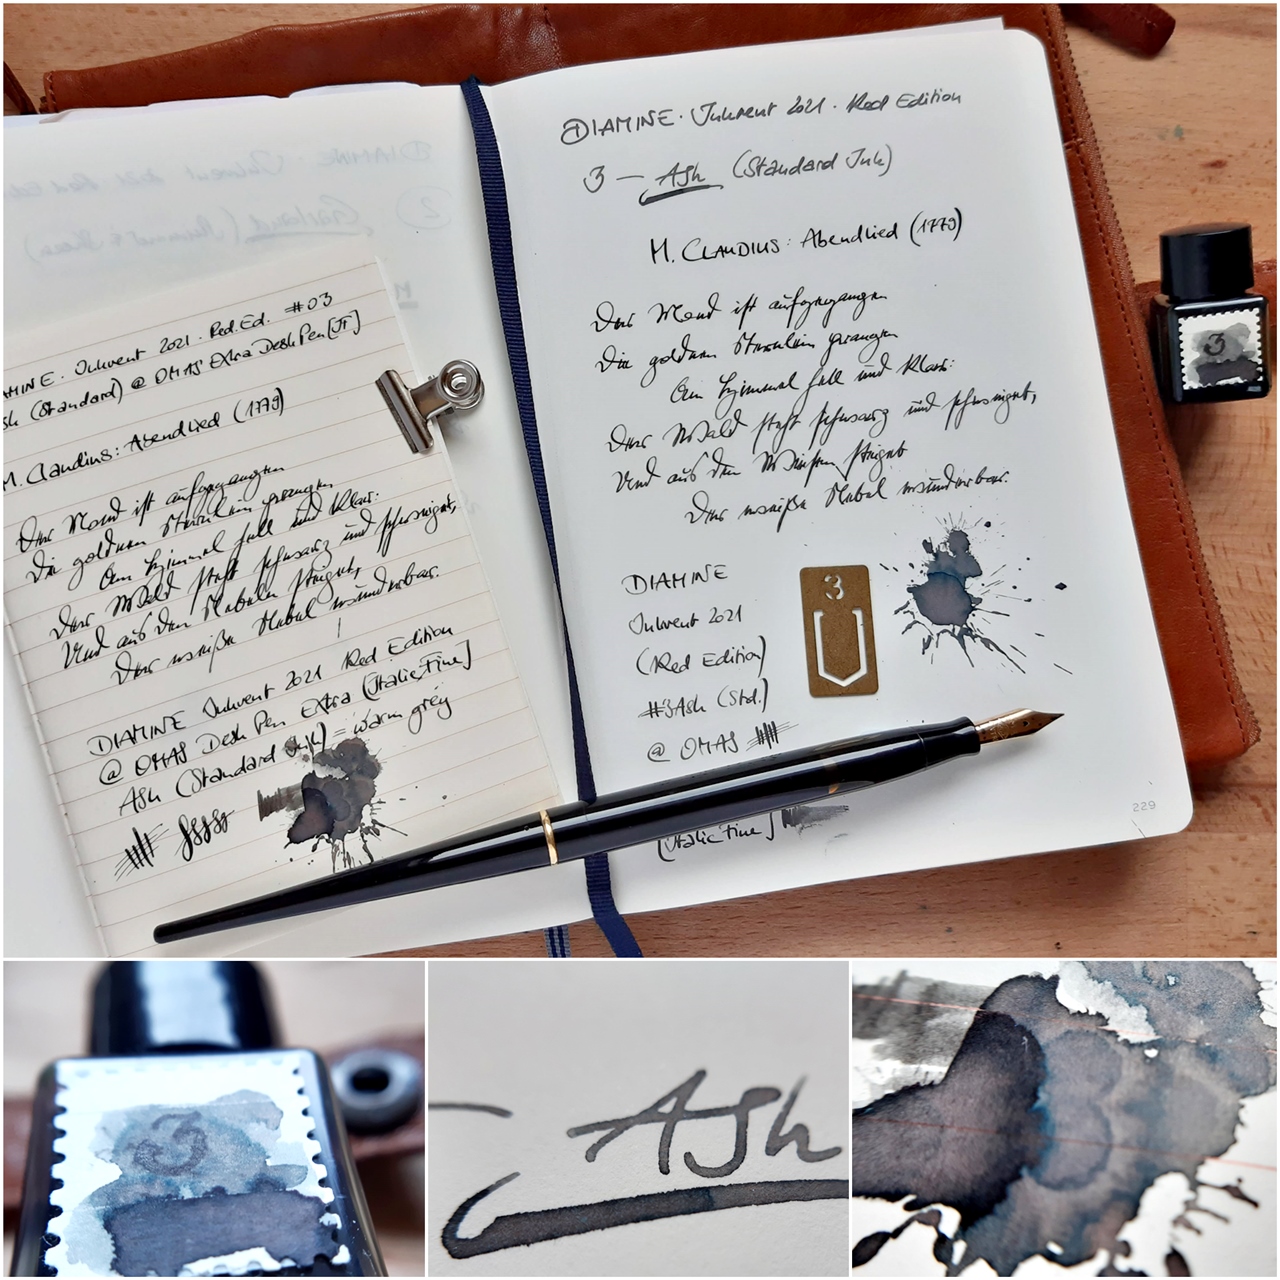 AMINE. Inkvent 2021. Red. Ed. #03
sh (Standard) @ OMAS Extra Desk Pen [IF]
M. Claudius: Abendlied (1779)
Der Mond ist aufgegangen
Die goldnen Sternlein prangen
Am Himmel hell und klar:
Der Wald steht schwarz und schweiget,
Und aus den Nebeln steiget,
Der weiße Nebel wunderbar.
DIAMINE Inkvent 2021 Red Edition
@ OMAS Desk Pen Extra [Italic, Fine]
Ash (Standard Ink) = warm grey
DIAMINE · Inkvent 2021 · Red Edition
3 — Ash (Standard Ink)
M. CLAUDIUS: Abendlied (1779)
Der Mond ist aufgegangen
Die goldnen Sternlein prangen
Am Himmel hell und klar:
Der Wald steht schwarz und schweiget,
Und aus den Wiesen steiget
Der weiße Nebel wunderbar.
DIAMINE
Inkvent 2021
(Red Edition)
#3 Ash (Std.)
@ OMAS
[Italic Fine]
3
229
3
3
Ash